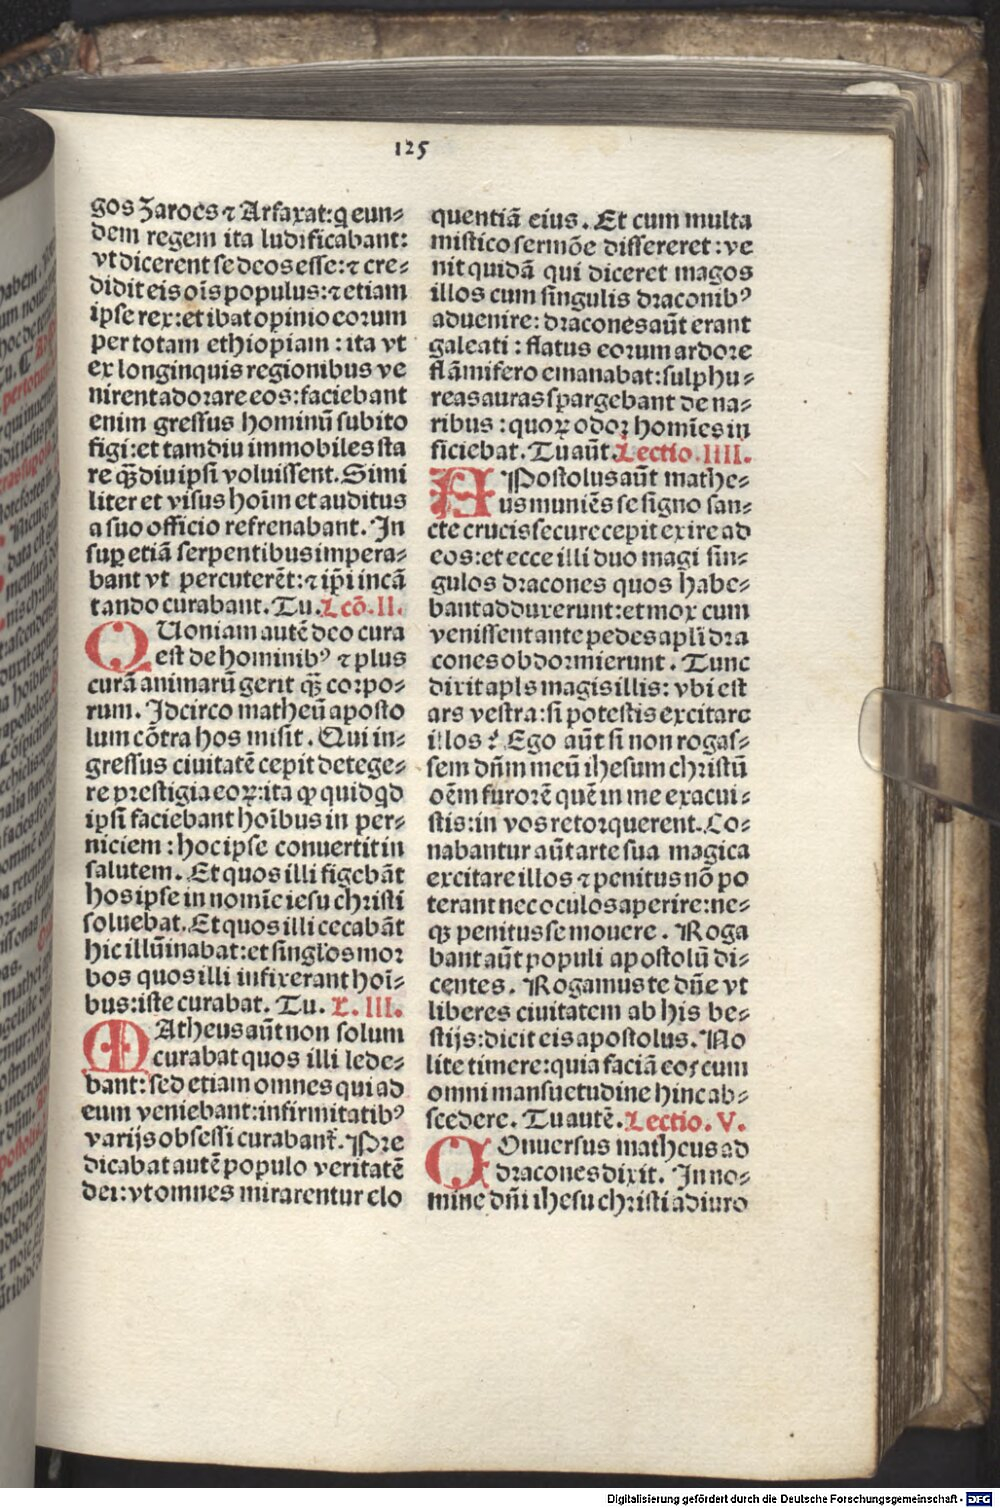 125
gos Zaroes ⁊ Arfaxat: q̇ eun⸗
dem regem ita ludificabant:
vt dicerent se deos esse: ⁊ cre⸗
didit eis oīs populus: ⁊ etiam
ipse rex: et ibat opinio eorum
per totam ethiopiam : ita vt
ex longinquis regionibus ve
nirent adorare eos: faciebant
enim gressus hominū subito
figi: et tamdiu immobiles sta
re qȝdiu ipsi voluissent. Simi
liter et visus hoīm et auditus
a suo officio refrenabant. In
suꝑ etiā serpentibus impera⸗
bant vt percuterēt: ⁊ ip̄i incā
tando curabant. Tu. Lcō. II.
QUoniam autē deo cura
est de hominibꝰ ⁊ plus
curā animarū gerit qȝ corpo⸗
rum. Idcirco matheū aposto
lum cōtra hos misit. Qui in⸗
gressus ciuitatē cepit detege⸗
re prestigia eoꝝ: ita ꝙ quidqd
ipsi faciebant hoībus in per⸗
niciem : hoc ipse conuertit in
salutem. Et quos illi figebāt
hos ipse in nomīe iesu christi
soluebat. Et quos illi cecabāt
hic illūinabat: et singl'os mor
bos quos illi infixerant hoī⸗
bus: iste curabat. Tu. L. III.
MAtheus aūt non solum
curabat quos illi lede⸗
bant: sed etiam omnes qui ad
eum veniebant: infirmitatibꝰ
varijs obsessi curabant̄. Pre
dicabat autē populo veritatē
dei: vt omnes mirarentur elo
quentiā eius. Et cum multa
mistico sermōe dissereret: ve
nit quidā qui diceret magos
illos cum singulis draconibꝰ
aduenire: dracones aūt erant
galeati : flatus eorum ardore
flāmifero emanabat: sulphu⸗
reas auras spargebant de na⸗
ribus : quoꝝ odor homīes in
ficiebat. Tu aūt. Lectio. IIII.
APostolus aūt mathe⸗
us muniēs se signo san⸗
cte crucis secure cepit exire ad
eos: et ecce illi duo magi sin⸗
gulos dracones quos habe⸗
bant adduxerunt: et mox cum
venissent ante pedes apl'i dra
cones obdormierunt. Tunc
dixit apl's magis illis: vbi est
ars vestra: si potestis excitare
illos? Ego aūt si non rogas⸗
sem dn̄m meū ihesum christū
oēm furorē quē in me exacui⸗
stis: in vos retorquerent. Co⸗
nabantur aūt arte sua magica
excitare illos ⁊ penitus nō po
terant nec oculos aperire: ne⸗
qȝ penitus se mouere. Roga
bant aūt populi apostolū di⸗
centes. Rogamus te dn̄e vt
liberes ciuitatem ab his be⸗
stijs: dicit eis apostolus. No
lite timere: quia faciā eos cum
omni mansuetudine hinc ab⸗
scedere. Tu autē. Lectio. V.
COnuersus matheus ad
dracones dixit. In no⸗
mine dn̄i ihesu christi adiuro
Digitalisierung gefördert durch die Deutsche Forschungsgemeinschaft - DFG